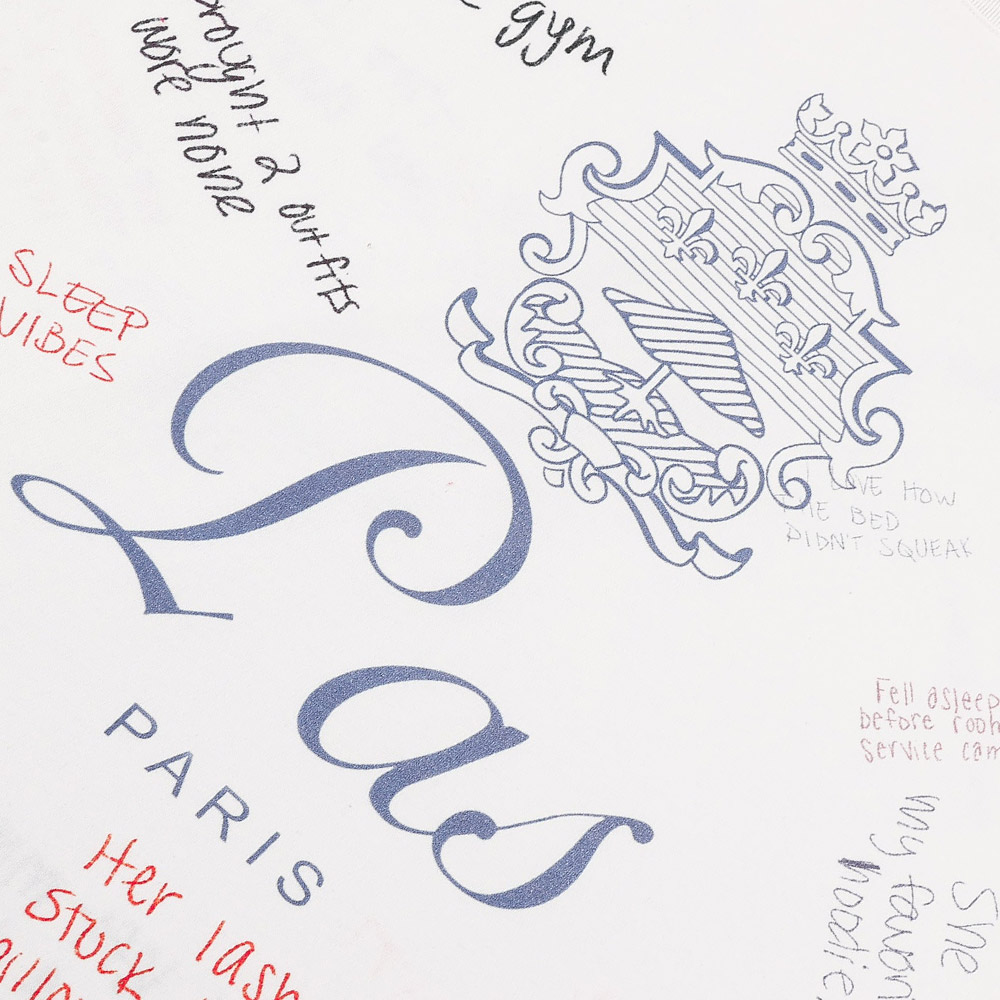 gym
brought 2 outfits
wore none
SLEEP
VIBES
LOVE HOW
THE BED
DIDN'T SQUEAK
Pas
PARIS
Fell asleep
before room
service cam
My favori
hoodie
She
Her lash
Stuck